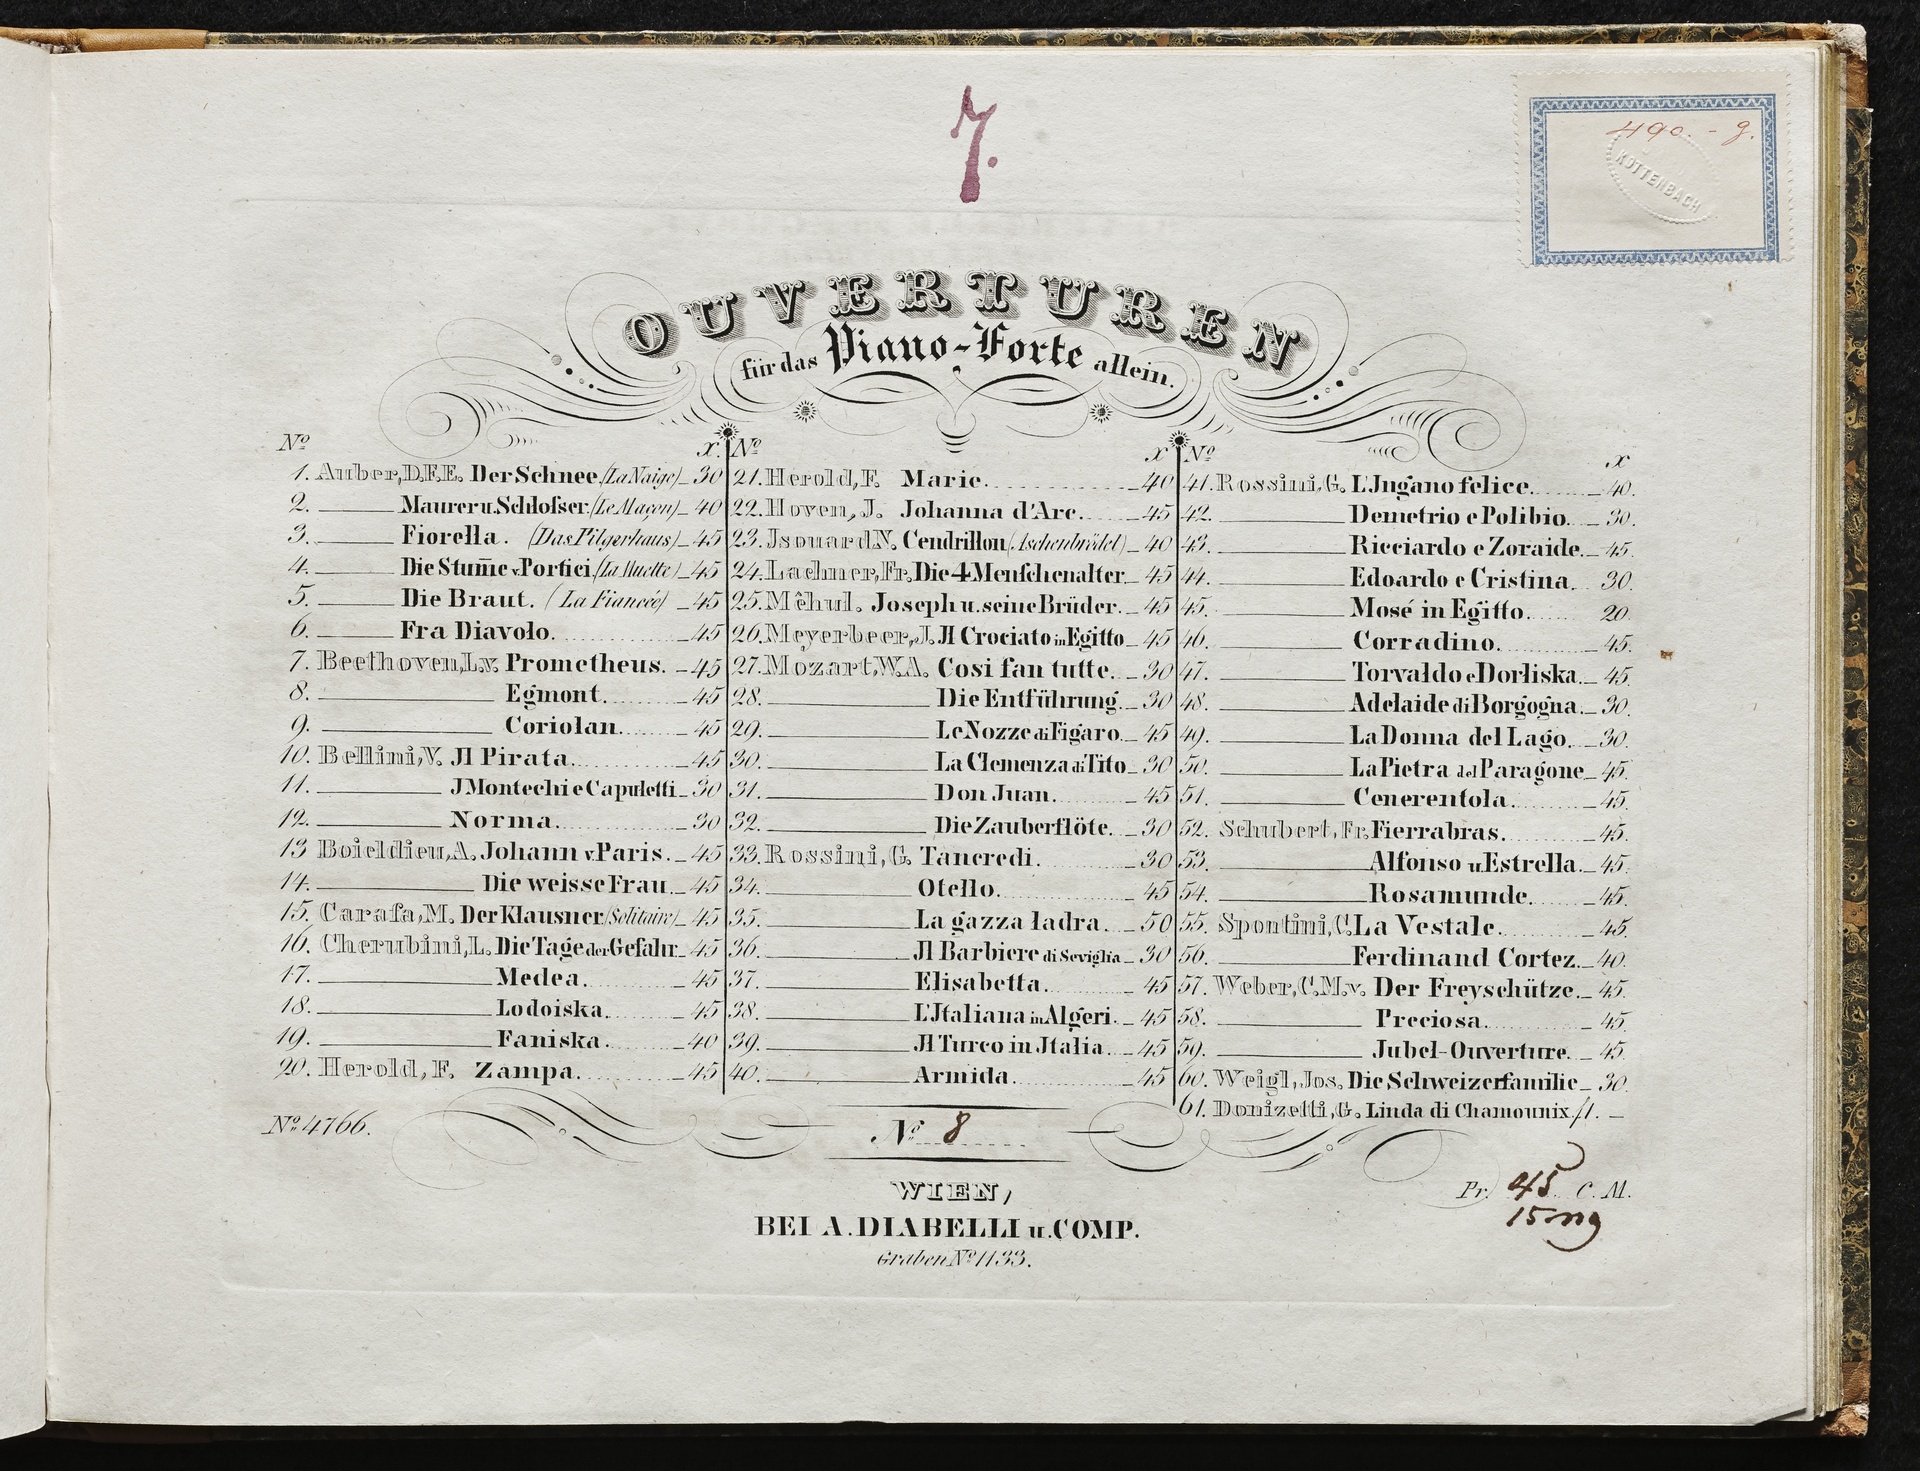 7.
490. - g.
KOTTENBACH
OUVERTUREN
für das Piano-Forte allein.
No x.
1. Auber, D.F.E. Der Schnee (La Naige) 30
2. Maurer u. Schlosser. (Le Maçon) 40
3. Fiorella. (Das Pilgerhaus) 45
4. Die Stum̄e v. Portici. (La Muette) 45
5. Die Braut. (La Fiancée) 45
6. Fra Diavolo. 45
7. Beethoven, L.v. Prometheus. 45
8. Egmont. 45
9. Coriolan. 45
10. Bellini, V. Il Pirata. 45
11. I Montechi e Capuletti 30
12. Norma. 30
13 Boieldieu, A. Johann v. Paris. 45
14. Die weisse Frau. 45
15. Carafa, M. Der Klausner (Solitaire) 45
16. Cherubini, L. Die Tage der Gefahr. 45
17. Medea. 45
18. Lodoiska. 45
19. Faniska. 40
20. Herold, F. Zampa. 45
No x
21. Herold, F. Marie. 40
22. Hoven, J. Johanna d'Arc. 45
23. Isouard N. Cendrillon (Aschenbrödel) 40
24. Lachner, Fr. Die 4 Menschenalter 45
25. Mêhul. Joseph u. seine Brüder. 45
26. Meyerbeer, J. Il Crociato in Egitto 45
27. Mozart, W.A. Cosi fan tutte. 30
28. Die Entführung. 30
29. Le Nozze di Figaro. 45
30. La Clemenza di Tito 30
31. Don Juan. 45
32. Die Zauberflöte. 30
33. Rossini, G. Tancredi. 30
34. Otello. 45
35. La gazza ladra. 50
36. Il Barbiere di Seviglia 30
37. Elisabetta. 45
38. L'Italiana in Algeri. 45
39. Il Turco in Italia. 45
40. Armida. 45
No x
41. Rossini, G. L'Ingano felice. 40.
42. Demetrio e Polibio. 30.
43. Ricciardo e Zoraide. 45.
44. Edoardo e Cristina. 30.
45. Mosé in Egitto. 20.
46. Corradino. 45.
47. Torvaldo e Dorliska. 45.
48. Adelaide di Borgogna. 30.
49. La Donna del Lago. 30.
50. La Pietra del Paragone 45.
51. Cenerentola. 45.
52. Schubert, Fr. Fierrabras. 45.
53. Alfonso u. Estrella. 45.
54. Rosamunde. 45.
55. Spontini, C. La Vestale. 45.
56. Ferdinand Cortez. 40.
57. Weber, C.M.v. Der Freyschütze. 45.
58. Preciosa. 45.
59. Jubel-Ouverture. 45.
60. Weigl, Jos. Die Schweizerfamilie 30.
61. Donizetti, G. Linda di Chamounix. f1. –
No 4766.
No 8
Pr. 45 C. M.
15 ng
WIEN,
BEI A. DIABELLI u. COMP.
Graben No 1133.